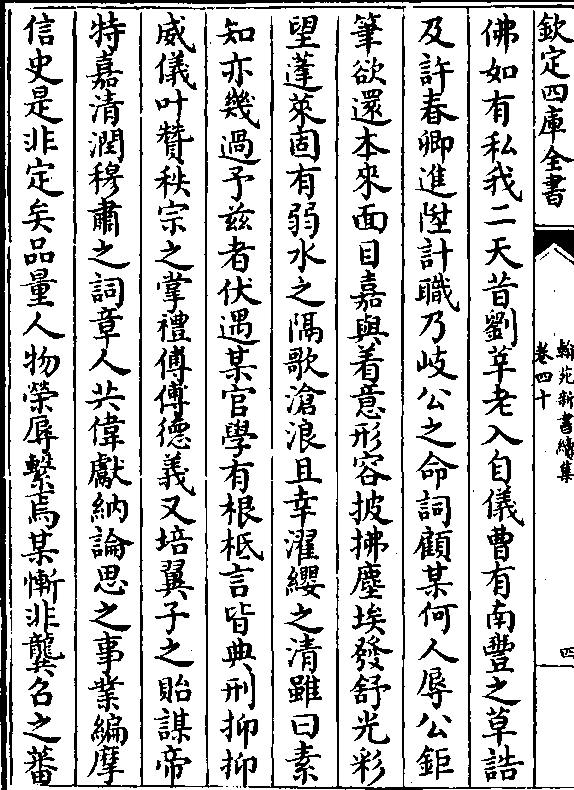 欽定四庫全書
翰苑新書續集
卷四十
四
佛如有私我二天昔劉莘老入自儀曹有南豐之草誥
及許春卿進陞計職乃岐公之命詞顧某何人辱公鉅
筆欲還本來面目嘉與着意形容披拂塵埃發舒光彩
望蓬萊固有弱水之隔歌滄浪且幸濯纓之清雖曰素
知亦幾過予兹者伏遇某官學有根柢言皆典刑抑抑
威儀叶贊秩宗之掌禮傅傅德義又培翼子之貽謀帝
特嘉清潤穆肅之詞章人共偉獻納論思之事業編摩
信史是非定矣品量人物榮辱繫焉某慚非龔召之蕃